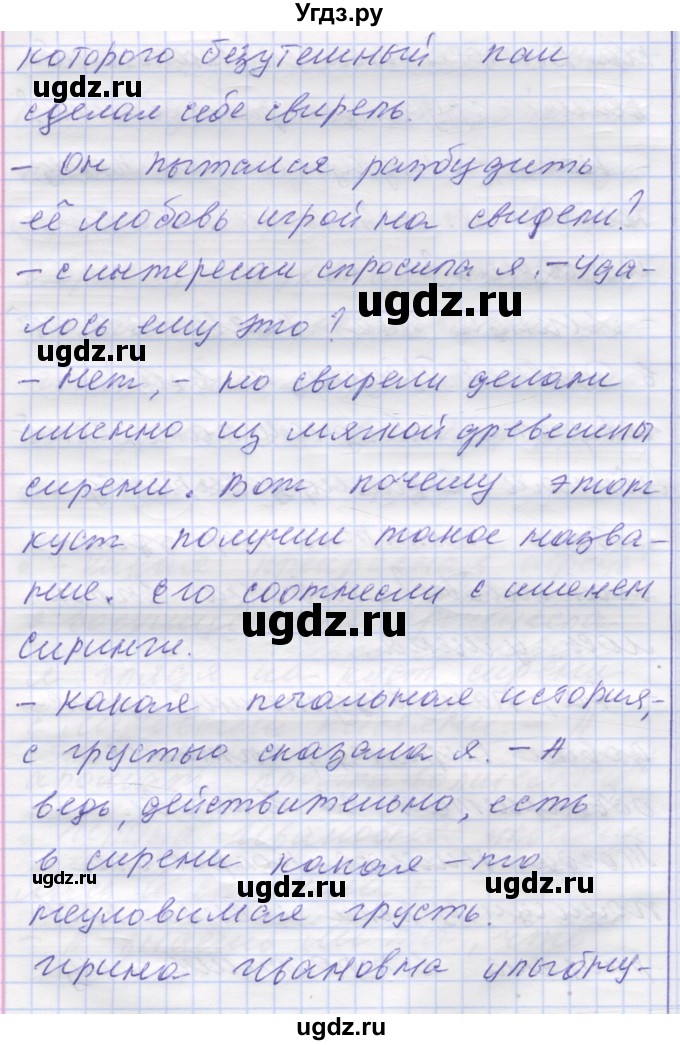 Угдз.ру
которого безутешный пан
ugdz.ru
сделал себе свирель.
– Он пытался разбудить
её любовь игрой на свидели?
– с интересам спросила я. – Уда-
ugdz.ru
лось ему это?
ugdz.ru
– Нет, – но свирели делали
именно из мягкой древесины
сирени. Вот почему этот
куст получил такое назва-
ние. Его соотнесли с именем
ugdz.ru
Сиринги.
– Какая печальная история, –
с грустью сказала я. – А
ведь, действительно, есть
в сирени какая – то
ugdz.ru ugdz.ru ugdz.ru
неуловимая грусть.
Ирина Ивановна улыбну-
ugdz.ru